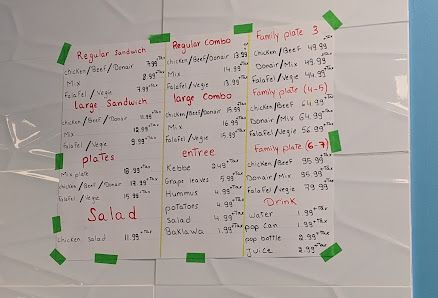 Regular Sandwich
chicken/Beef/Donair 7.99+Tax
Mix 8.99+Tax
Falafel/Vegie 7.99+Tax
large Sandwich
chicken/Beef/Donair 11.99+Tax
Mix 12.99+Tax
Falafel/Vegie 9.99+Tax
plates
Mix plate 18.99+Tax
chicken/Beef/Donair 17.99+Tax
Falafel/Vegie 15.99+Tax
Salad
chicken salad 11.99+Tax
Regular Combo
chicken/Beef/Donair 13.99+Tax
Mix 14.99+Tax
Falafel/Vegie 13.99+Tax
large Combo
chicken/Beef/Donair 15.99+Tax
Mix 16.99+Tax
Falafel/Vegie 15.99+Tax
enTree
Kebbe 2.49+Tax
Grape leaves 5.99+Tax
Hummus 4.99+Tax
potatoes 4.99+Tax
Salad 4.99+Tax
Baklawa 1.99+Tax
Family plate 3
Chicken/Beef 49.99+Tax
Donair/Mix 49.99+Tax
Falafel/Vegie 44.99+Tax
Family plate (4-5)
chicken/Beef 64.99+Tax
Donair/Mix 64.99+Tax
Falafel/Vegie 56.99+Tax
Family plate (6-7)
chicken/Beef 95.99+Tax
Donair/Mix 95.99+Tax
Falafel/Vegie 79.99+Tax
Drink
water 1.99+Tax
pop can 1.99+Tax
pop bottle 2.99+Tax
Juice 2.99+Tax